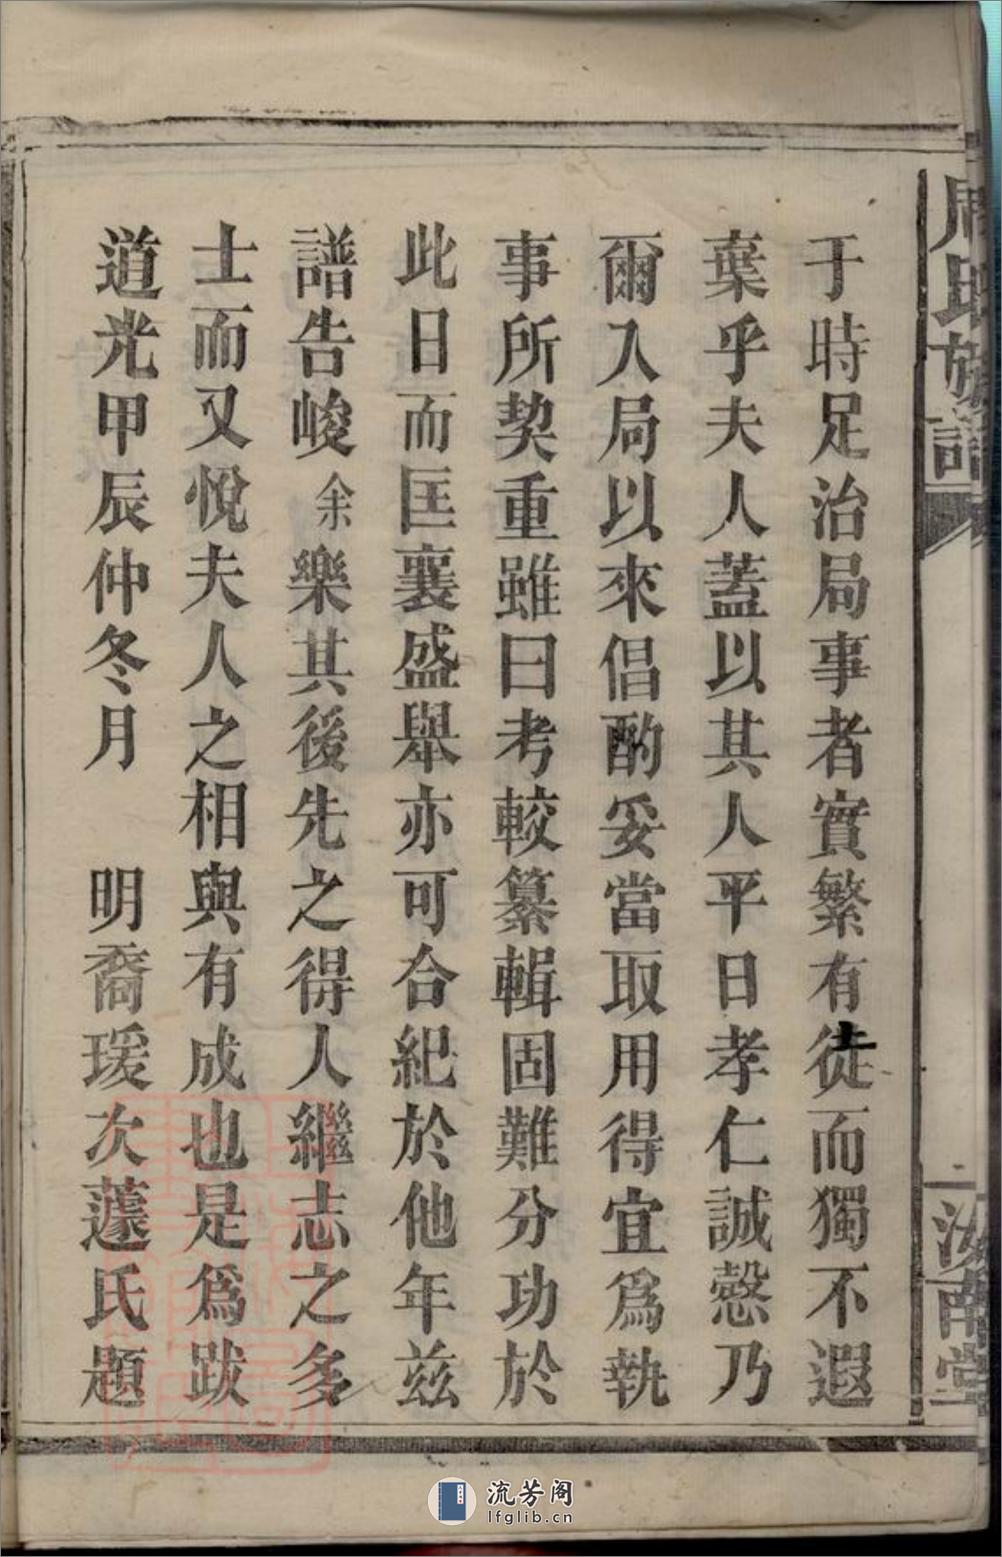 周氏族譜
一
汝南堂
于時足治局事者實繁有徒而獨不遐
葉乎夫人蓋以其人平日孝仁誠慤乃
爾入局以來倡酌妥當取用得宜爲執
事所契重雖曰考較纂輯固難分功於
此日而匡襄盛舉亦可合紀於他年茲
譜告峻余樂其後先之得人繼志之多
士而又悅夫人之相與有成也是爲跋
道光甲辰仲冬月 明裔瑗次蘧氏題
流芳阁
lfglib.cn